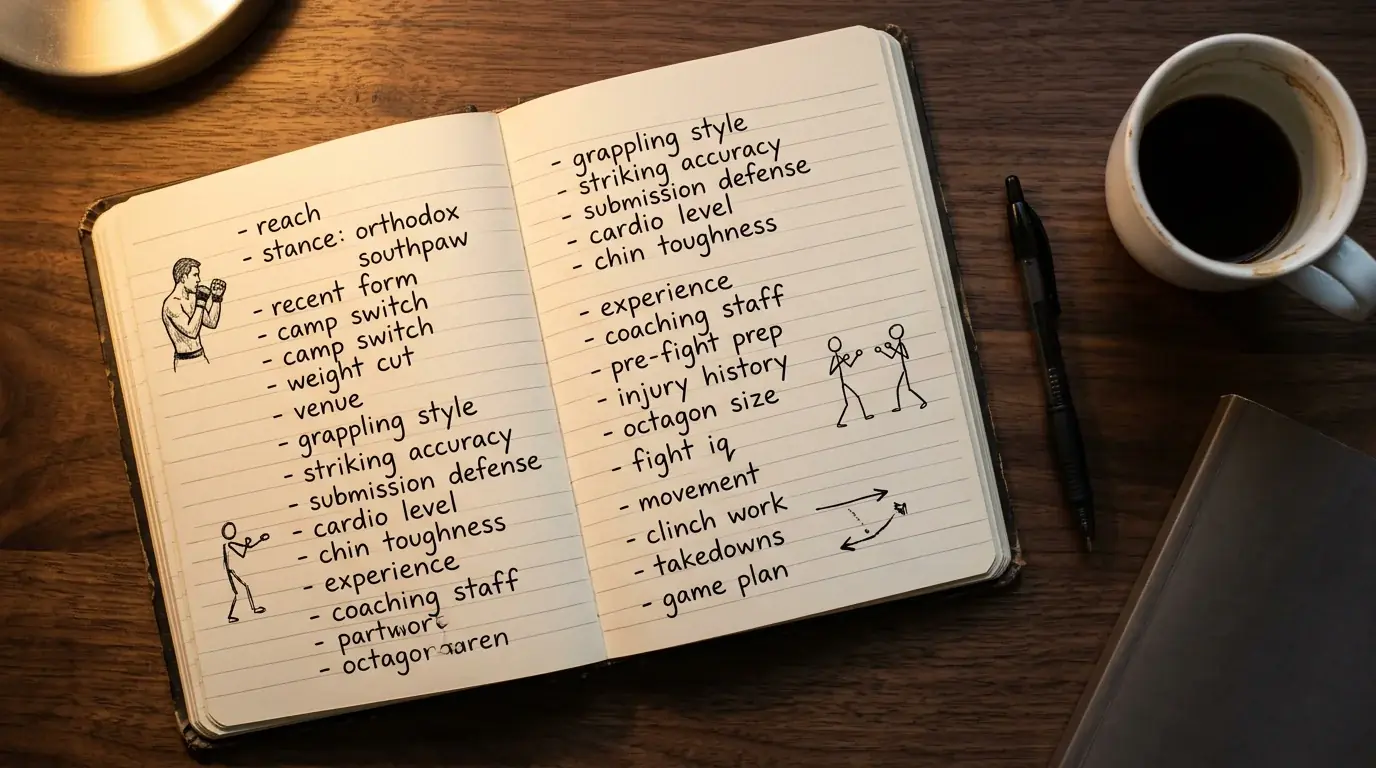 - reach
- stance: orthodox
southpaw
- recent form
- camp switch
- camp switch
- weight cut
- venue
- grappling style
- striking accuracy
- submission defense
- cardio level
- chin toughness
- experience
- coaching staff
- grappling style
- striking accuracy
- submission defense
- cardio level
- chin toughness
- experience
- coaching staff
- pre-fight prep
- injury history
- octagon size
- fight iq
- movement
- clinch work
- takedowns
- game plan